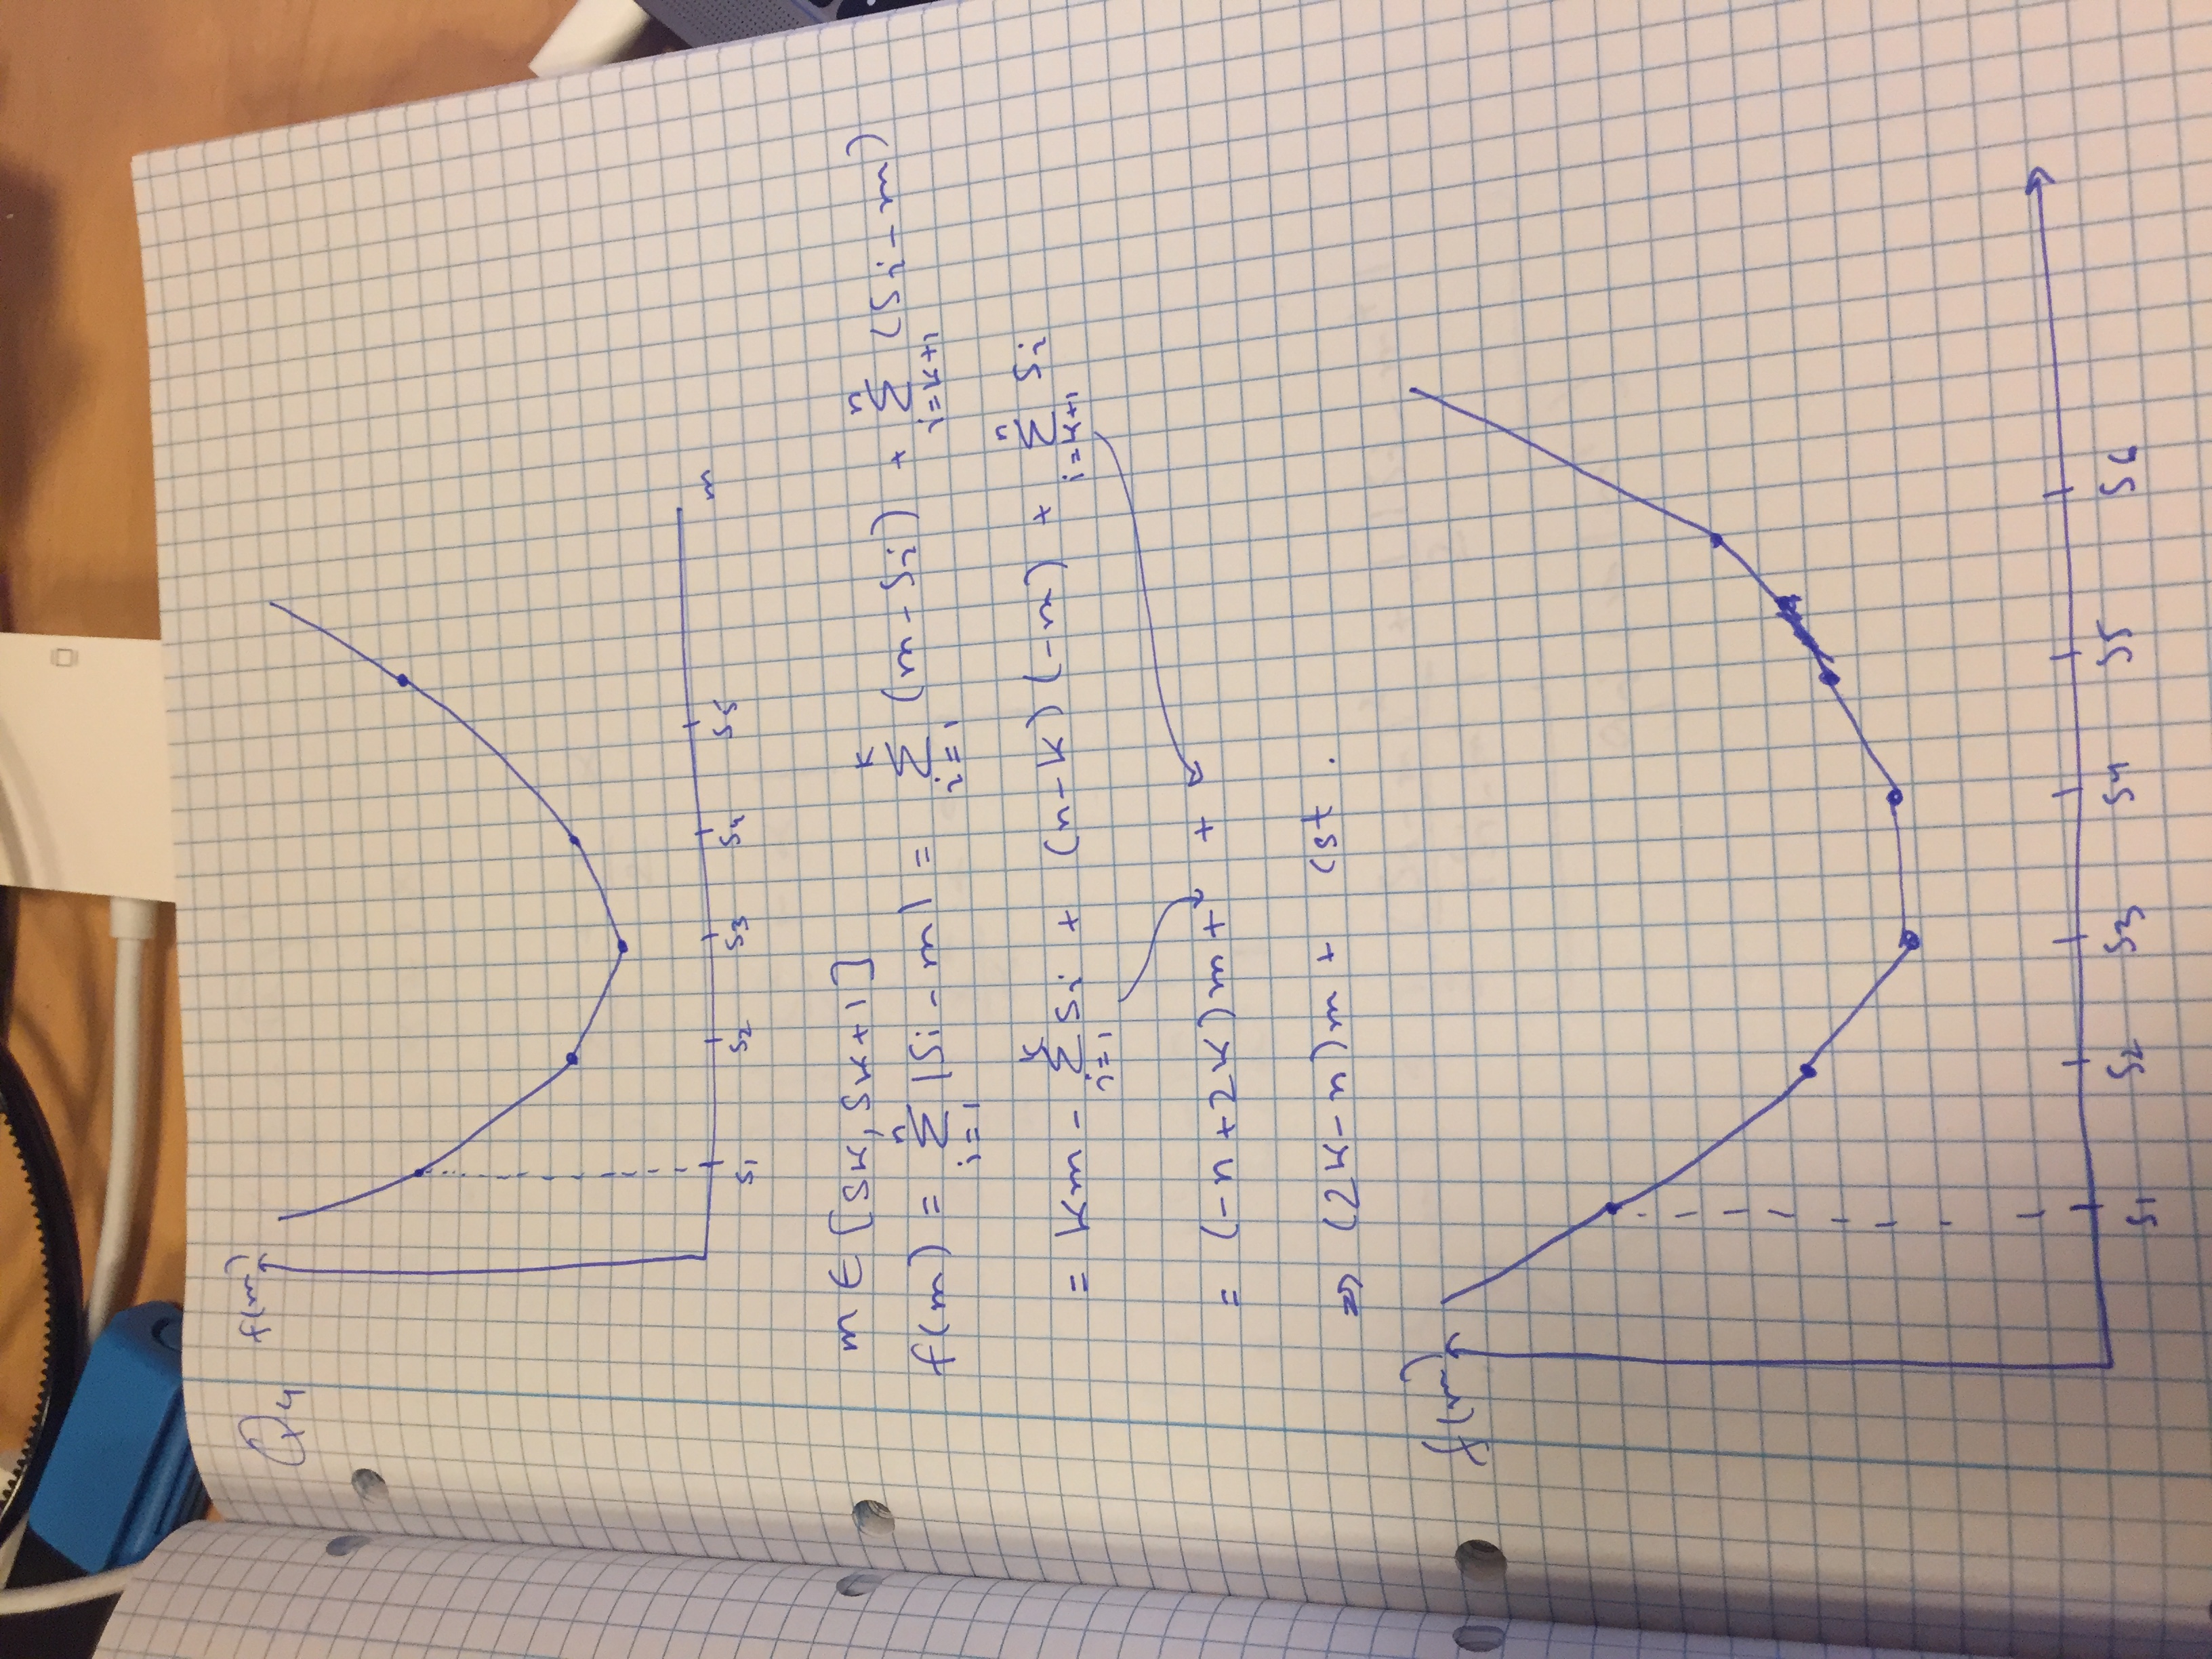 Q4
f(m)
s1 s2 s3 s4 s5 m
m ∈ [sk, sk+1]
f(m) = ∑_{i=1}^{n} |si - m| = ∑_{i=1}^{k} (m - si) + ∑_{i=k+1}^{n} (si - m)
= km - ∑_{i=1}^{k} si + (n-k)(-m) + ∑_{i=k+1}^{n} si
= (-n+2k)m + +
⇒ (2k-n)m + cst.
f(m)
s1 s2 s3 s4 s5 s6